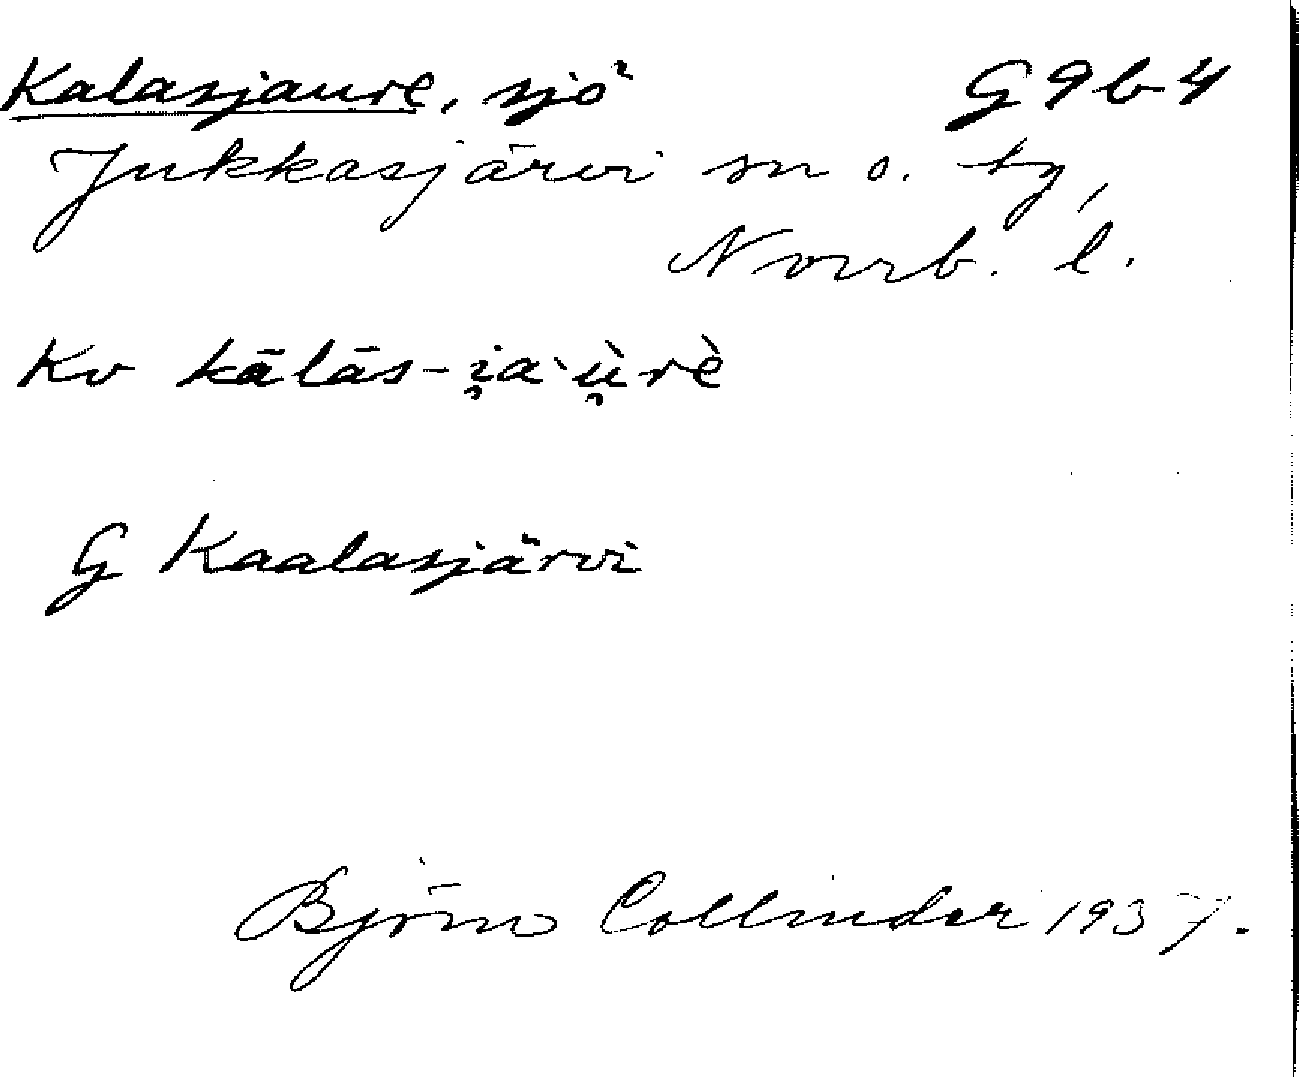 Kalasjaure, sjö G9b4
Jukkasjärvi sn o. tg,
Norrb. l.
Kv kālās-i̯a`ù̯rè
G Kaalasjärvi
Björn Collinder 1937.